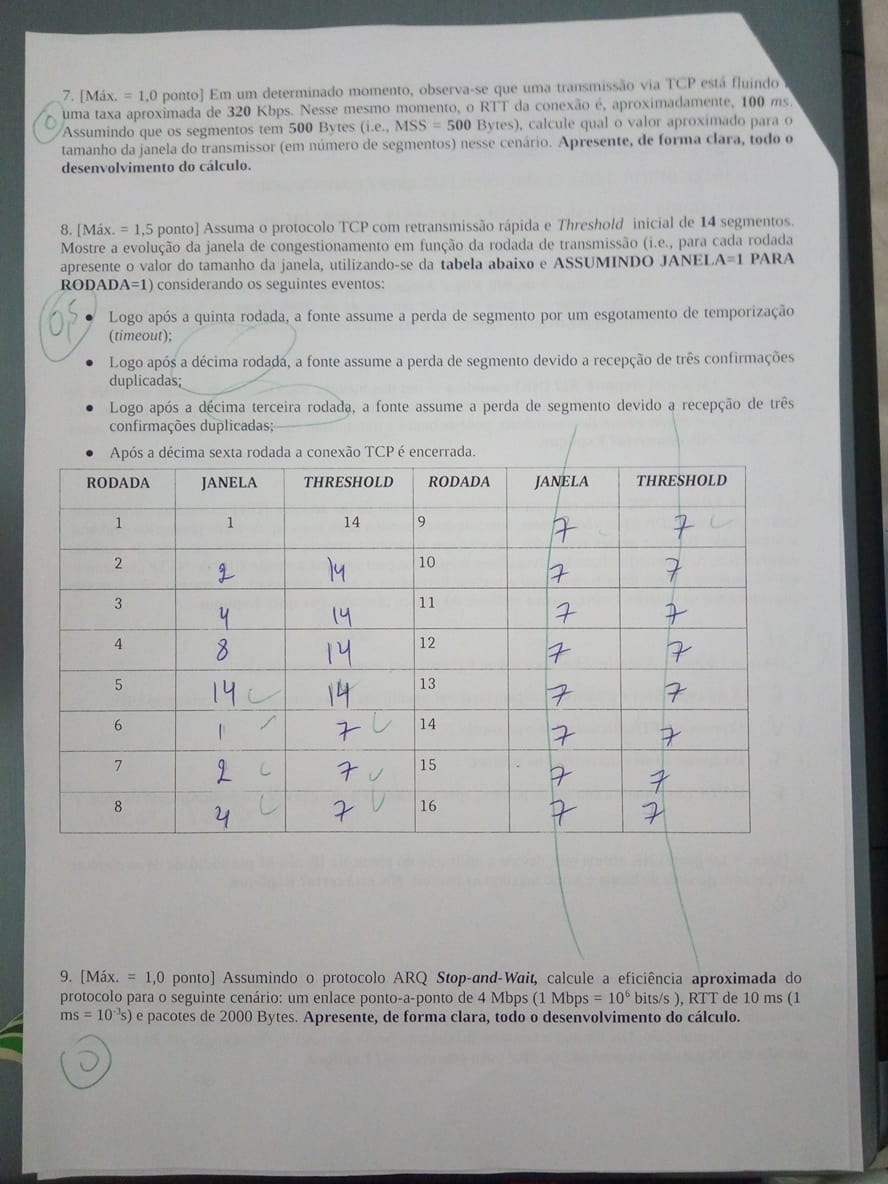 7. [Máx. = 1,0 ponto] Em um determinado momento, observa-se que uma transmissão via TCP está fluindo
uma taxa aproximada de 320 Kbps. Nesse mesmo momento, o RTT da conexão é, aproximadamente, 100 ms.
Assumindo que os segmentos tem 500 Bytes (i.e., MSS = 500 Bytes), calcule qual o valor aproximado para o
tamanho da janela do transmissor (em número de segmentos) nesse cenário. Apresente, de forma clara, todo o
desenvolvimento do cálculo.
0
8. [Máx. = 1,5 ponto] Assuma o protocolo TCP com retransmissão rápida e Threshold inicial de 14 segmentos.
Mostre a evolução da janela de congestionamento em função da rodada de transmissão (i.e., para cada rodada
apresente o valor do tamanho da janela, utilizando-se da tabela abaixo e ASSUMINDO JANELA=1 PARA
RODADA=1) considerando os seguintes eventos:
• Logo após a quinta rodada, a fonte assume a perda de segmento por um esgotamento de temporização
(timeout);
• Logo após a décima rodada, a fonte assume a perda de segmento devido a recepção de três confirmações
duplicadas;
• Logo após a décima terceira rodada, a fonte assume a perda de segmento devido a recepção de três
confirmações duplicadas;
• Após a décima sexta rodada a conexão TCP é encerrada.
RODADA JANELA THRESHOLD RODADA JANELA THRESHOLD
1 1 14 9 7 7
2 2 14 10 7 7
3 4 14 11 7 7
4 8 14 12 7 7
5 14 14 13 7 7
6 1 7 14 7 7
7 2 7 15 7 7
8 4 7 16 7 7
9. [Máx. = 1,0 ponto] Assumindo o protocolo ARQ Stop-and-Wait, calcule a eficiência aproximada do
protocolo para o seguinte cenário: um enlace ponto-a-ponto de 4 Mbps (1 Mbps = 10⁶ bits/s ), RTT de 10 ms (1
ms = 10⁻³s) e pacotes de 2000 Bytes. Apresente, de forma clara, todo o desenvolvimento do cálculo.
0